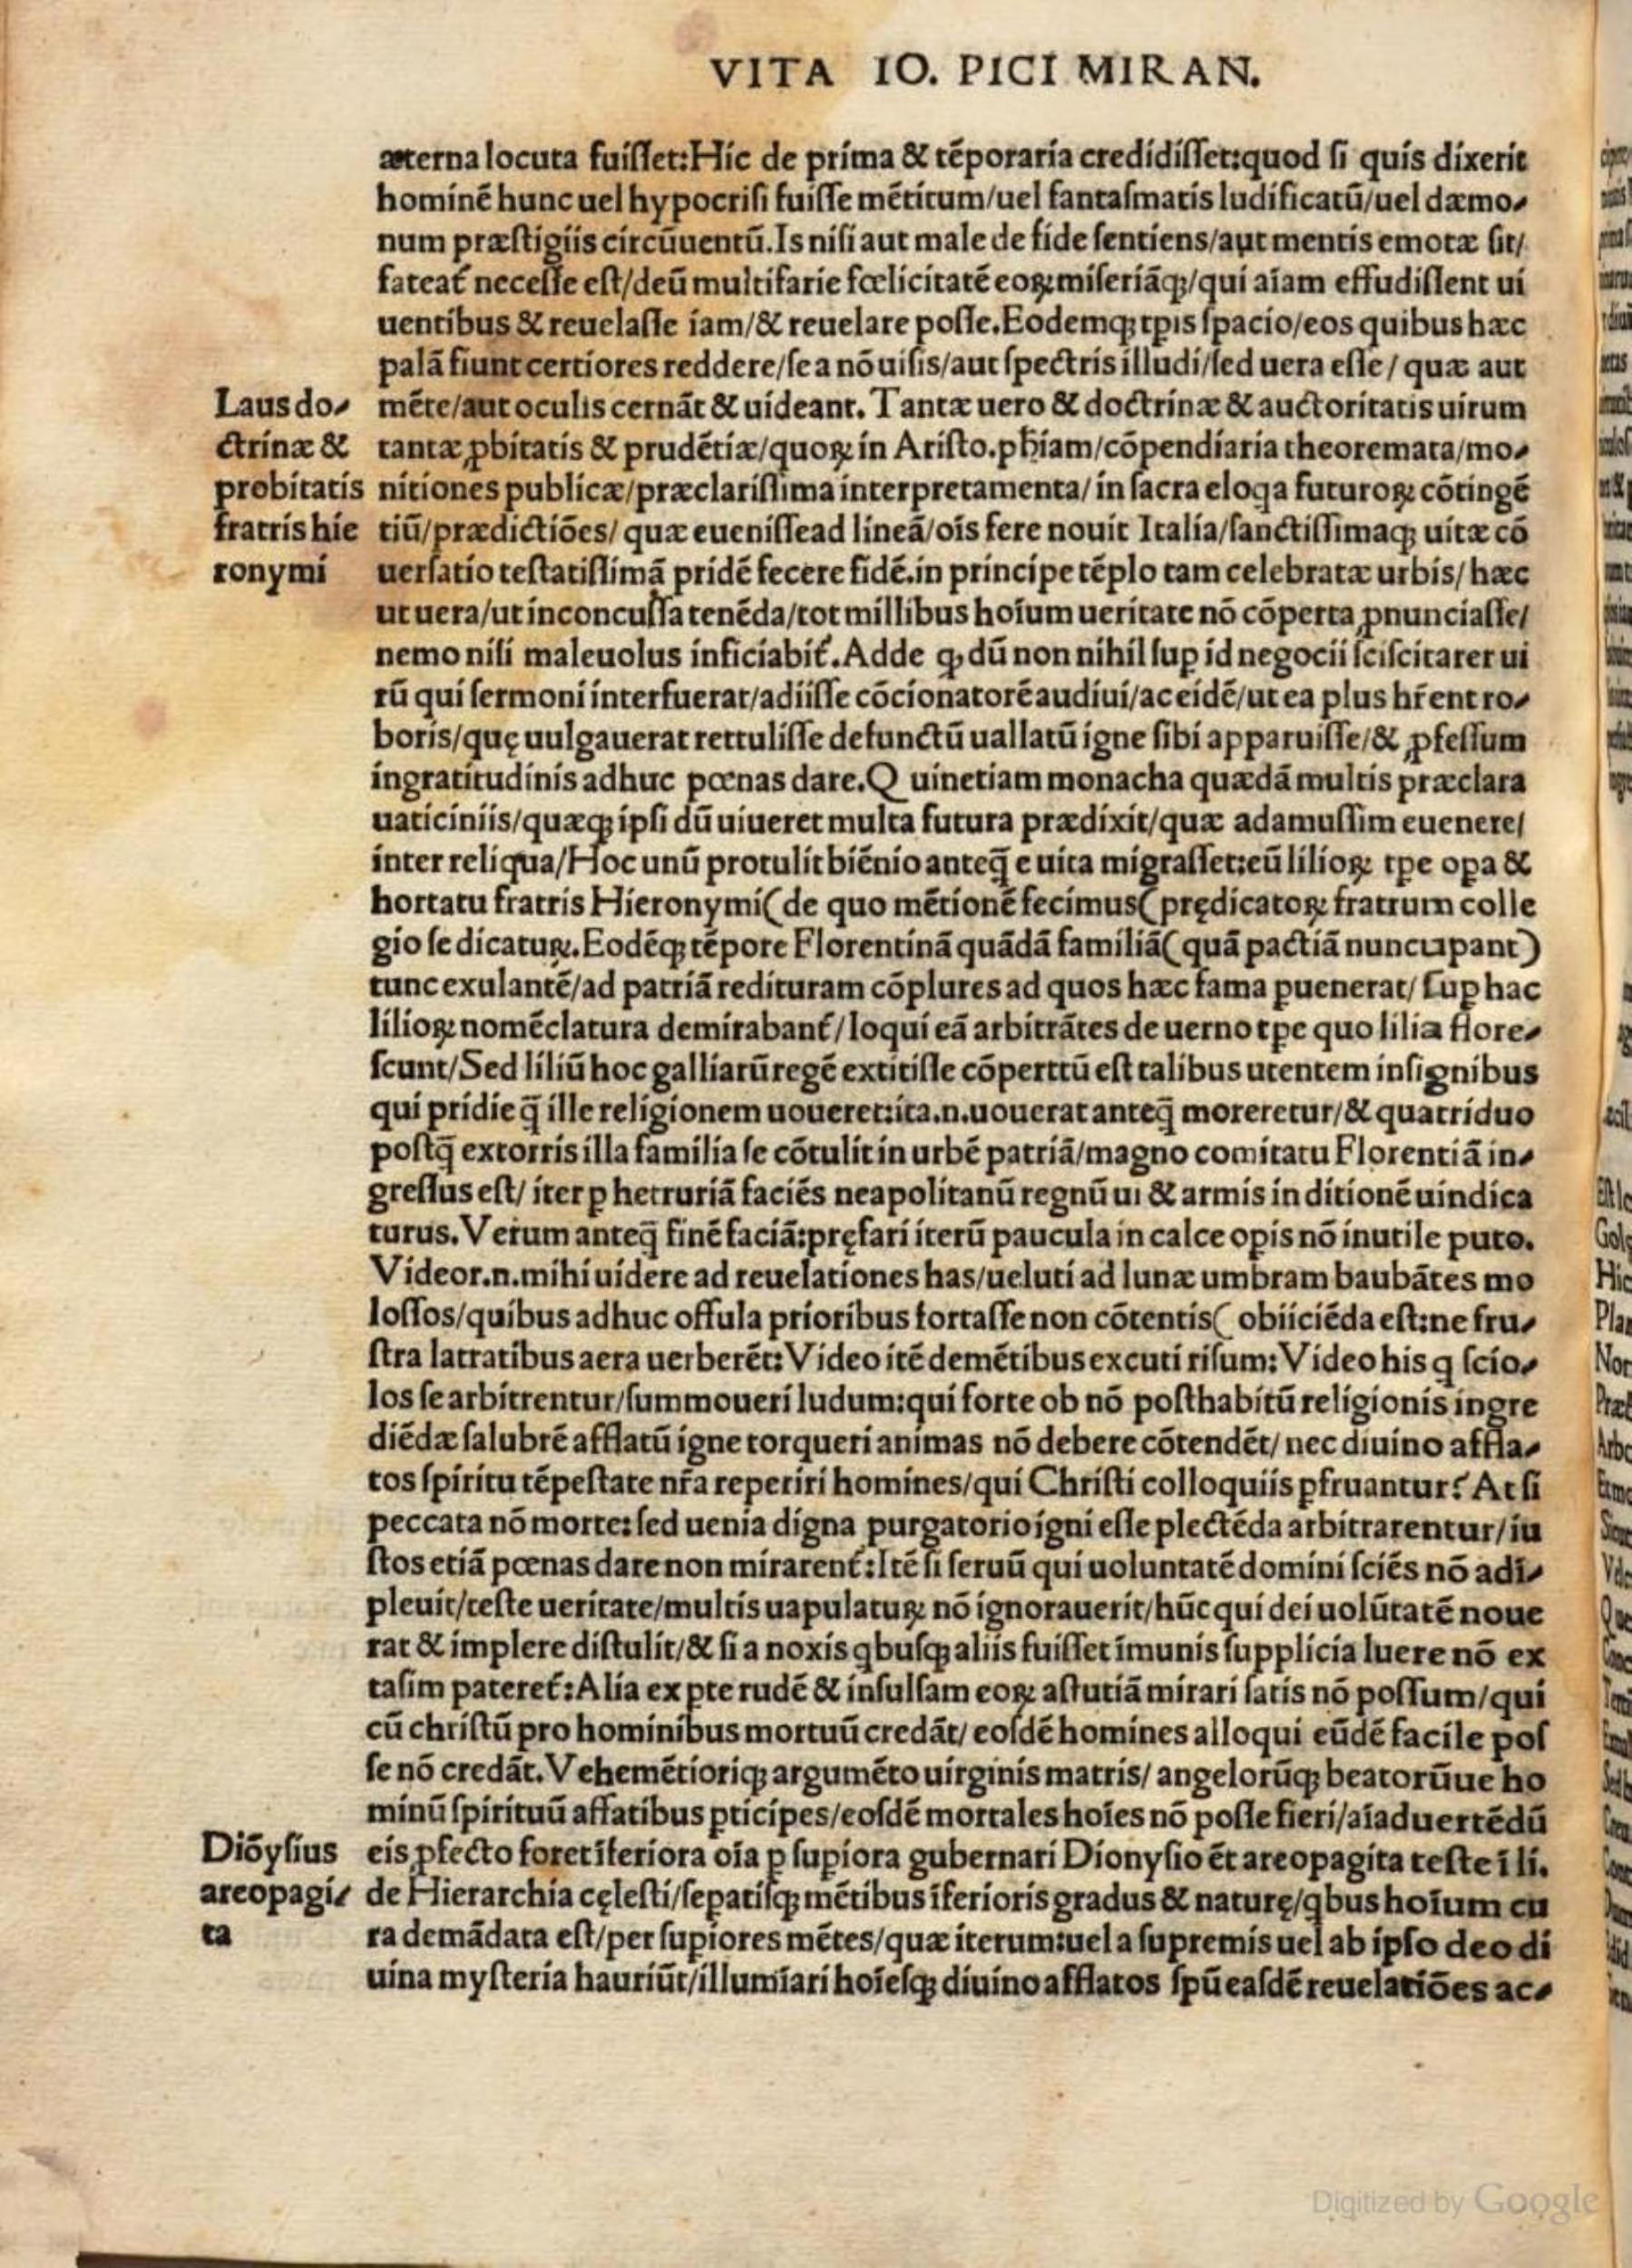 VITA IO. PICI MIRAN.
æterna locuta fuiſſet:Hic de prima & tēporaria credidiſſet:quod ſi quis dixerit
hominē hunc uel hypocriſi fuiſſe mētitum/uel fantaſmatis ludificatū/uel dæmo-
num præſtigiis circūuentū.Is niſi aut male de fide ſentiens/aut mentis emotæ ſit/
fateat᷑ neceſſe eſt/deū multifarie fœlicitatē eoꝝ miſeriāqꝫ/qui aīam effudiſſent ui
uentibus & reuelaſſe iam/& reuelare poſſe.Eodemqꝫ tp̄is ſpacio/eos quibus hæc
palā fiunt certiores reddere/ſe a nō uiſis/aut ſpectris illudi/ſed uera eſſe/ quæ aut
Laus do-
ctrinæ &
probitatis
fratris hie
ronymi
mēte/aut oculis cernāt & uideant. Tantæ uero & doctrinæ & auctoritatis uirum
tantæ ꝓbitatis & prudētiæ/quoꝝ in Ariſto.ph̄iam/cōpendiaria theoremata/mo-
nitiones publicæ/præclariſſima interpretamenta/ in ſacra eloq̇a futuroꝝ cōtingē
tiū/prædictiōes/ quæ eueniſſe ad lineā/oīs fere nouit Italia/ſanctiſſimaqꝫ uitæ cō
uerſatio teſtatiſſimā pridē fecere fidē.in principe tēplo tam celebratæ urbis/ hæc
ut uera/ut inconcuſſa tenēda/tot millibus hoīum ueritate nō cōperta ꝓnunciaſſe/
nemo niſi maleuolus inficiabit᷑.Adde ꝙ dū non nihil ſuꝑ id negocii ſciſcitarer ui
rū qui ſermoni interfuerat/adiiſſe cōcionatorē audiui/ac eidē/ut ea plus hr̄ent ro-
boris/quę uulgauerat rettuliſſe defunctū uallatū igne ſibi apparuiſſe/& ꝓfeſſum
ingratitudinis adhuc pœnas dare.Q uinetiam monacha quædā multis præclara
uaticiniis/quæqꝫ ipſi dū uiueret multa futura prædixit/quæ adamuſſim euenere/
inter reliqua/Hoc unū protulit biēnio anteq̄ e uita migraſſet:eū lilioꝝ tp̄e oꝑa &
hortatu fratris Hieronymi(de quo mētionē fecimus(prędicatoꝝ fratrum colle
gio ſe dicatuꝝ.Eodēqꝫ tēpore Florentinā quādā familiā(quā pactiā nuncupant)
tunc exulantē/ad patriā redituram cōplures ad quos hæc fama ꝑuenerat/ ſuꝑ hac
lilioꝝ nomēclatura demirabant᷑/loqui eā arbitrātes de uerno tp̄e quo lilia flore-
ſcunt/Sed liliū hoc galliarū regē extitiſſe cōperttū eſt talibus utentem inſignibus
qui pridie q̄ ille religionem uoueret:ita.n.uouerat anteq̄ moreretur/& quatriduo
poſtq̄ extorris illa familia ſe cōtulit in urbē patriā/magno comitatu Florentiā in-
greſſus eſt/ iter ꝑ hetruriā faciēs neapolitanū regnū ui & armis in ditionē uindica
turus. Verum anteq̄ finē faciā:pręfari iterū paucula in calce oꝑis nō inutile puto.
Videor.n.mihi uidere ad reuelationes has/ueluti ad lunæ umbram baubātes mo
loſſos/quibus adhuc offula prioribus fortaſſe non cōtentis( obiiciēda eſt:ne fru-
ſtra latratibus aera uerberēt: Video itē demētibus excuti riſum: Video his q̇ ſcio-
los ſe arbitrentur/ſummoueri ludum:qui forte ob nō poſthabitū religionis ingre
diēdæ ſalubrē afflatū igne torqueri animas nō debere cōtendēt/ nec diuino affla-
tos ſpiritu tēpeſtate nr̄a reperiri homines/qui Chriſti colloquiis ꝑfruantur? At ſi
peccata nō morte: ſed uenia digna purgatorio igni eſſe plectēda arbitrarentur/iu
ſtos etiā pœnas dare non mirarent᷑:Itē ſi ſeruū qui uoluntatē domini ſciēs nō adi-
pleuit/teſte ueritate/multis uapulatuꝝ nō ignorauerit/hūc qui dei uolūtatē noue
rat & implere diſtulit/& ſi a noxis q̇buſqꝫ aliis fuiſſet īmunis ſupplicia luere nō ex
taſim pateret᷑:Alia ex ꝑte rudē & inſulſam eoꝝ aſtutiā mirari ſatis nō poſſum/qui
cū chriſtū pro hominibus mortuū credāt/ eoſdē homines alloqui eūdē facile poſ
ſe nō credāt. Vehemētioriqꝫ argumēto uirginis matris/ angelorūqꝫ beatorūue ho
minū ſpirituū affatibus ꝑticipes/eoſdē mortales hoīes nō poſſe fieri/aīaduertēdū
Diōyſius
areopagi-
ta
eis ꝓfecto foret īferiora oīa ꝑ ſuꝑiora gubernari Dionyſio ēt areopagita teſte ī li.
de Hierarchia cęleſti/ſeꝑatiſqꝫ mētibus īferioris gradus & naturę/q̇bus hoīum cu
ra demādata eſt/per ſuꝑiores mētes/quæ iterum:uel a ſupremis uel ab ipſo deo di
uina myſteria hauriūt/illumīari hoīeſqꝫ diuino afflatos ſpū eaſdē reuelatiōes ac-
Digitized by Google